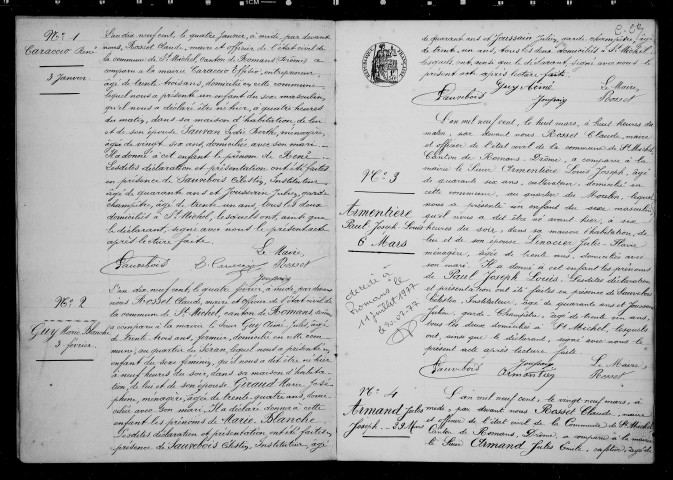 N° 1
Caraccio René
3 Janvier
L'an dix neuf cent, le quatre Janvier, à midi, par devant
nous, Rosset Claude, maire et officier de l'état civil de
la commune de St Michel, Canton de Romans (Drôme) a
comparu à la mairie Caraccio entrepreneur,
âgé de trente trois ans, domicilié en cette commune
lequel nous a présenté un enfant du sexe masculin,
qu'il nous a déclaré être né hier, à quatre heures
du matin, dans sa maison d'habitation, de lui
et de son épouse Sauvan Lydie Berthe, ménagère,
âgée de vingt six ans, domiciliée avec son mari.
Il a donné à cet enfant le prénom de René.
Lesdites déclaration et présentation ont été faites
en présence de Sauvebois Célestin, Instituteur
âgé de quarante ans et Joussain Julien, garde
champêtre, âgé de trente un ans, tous les deux
domiciliés à St Michel, lesquels ont, ainsi que
le déclarant, signé avec nous le présent acte
après lecture faite.
Le Maire,
Sauvebois Rosset
N° 2
Guy Marie Blanche
3 février
L'an dix neuf cent, le quatre février, à midi, par devant
nous Rosset Claude, maire et officier de l'état civil de la
commune de St Michel, canton de Romans (Drôme)
a comparu à la mairie le Sieur Guy Aimé Jules, âgé
de trente trois ans, fermier, domicilié en cette com
mune, au quartier du Seran, lequel nous a présenté un
enfant du sexe féminin, qu'il nous a dit être né hier,
à neuf heures du soir, dans sa maison d'habita
tion, de lui et de son épouse Giraud Marie José
phine, ménagère, âgée de trente quatre ans, domi
ciliée avec son mari. Il a déclaré donner à cette
enfant les prénoms de Marie Blanche
Lesdites déclaration et présentation ont été faites en
présence de Sauvebois Célestin, Instituteur, âgé
de quarante ans et Joussain Julien, garde champêtre, âgé
de trente un ans, tous les deux domiciliés à St Michel
lesquels ont, ainsi que le déclarant, signé avec nous le
présent acte après lecture faite.
Guy Aimé Le Maire,
Sauvebois Rosset
N° 3
Armentière
Paul Joseph Louis
6 Mars
décédé à
Romans le
11 juillet 1977
L'an mil neuf cent, le huit mars, à huit heures du
matin, par devant nous Rosset Claude, maire
et officier de l'état civil de la commune de St Michel
Canton de Romans-Drôme, a comparu à la mairie
le Sieur Armentière Louis Joseph, âgé
de quarante six ans, cultivateur, domicilié en
cette commune, au quartier du Moulin, lequel
nous a présenté un enfant du sexe masculin,
qu'il nous a dit être né avant hier, à six
heures du soir, dans sa maison d'habitation, de
lui et de son épouse Julie
ménagère, âgée de trente ans, domiciliée avec
son mari. Il a donné à cet enfant les prénoms
de Paul Joseph Louis. Lesdites déclaration
et présentation ont été faites en présence de Sauvebois
Célestin, Instituteur, âgé de quarante ans et Joussain
Julien, garde-champêtre, âgé de trente un ans,
tous les deux domiciliés à St Michel, lesquels
ont, ainsi que le déclarant, signé avec nous le
présent acte après lecture faite
Le Maire
Sauvebois Armentière Rosset
N° 4
Armand Jules
Joseph 29 Mars
L'an mil neuf cent, le vingt neuf mars, à
midi, par devant nous Rosset Claude, maire
et officier de l'état civil de la Commune de St Michel
Canton de Romans, Drôme, a comparu à la mairie
le Sieur Armand Jules Emile, âgé de